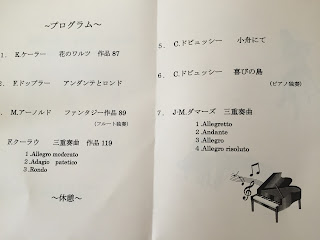 ～プログラム～
1. E.ケーラー 花のワルツ 作品87
2. F.ドップラー アンダンテとロンド
3. M.アーノルド ファンタジー作品89
（フルート独奏）
F.クーラウ 三重奏曲 作品119
1.Allegro moderato
2.Adagio patetico
3.Rondo
～休憩～
5. C.ドビュッシー 小舟にて
6. C.ドビュッシー 喜びの島
（ピアノ独奏）
7. J-M.ダマーズ 三重奏曲
1.Allegretto
2.Andante
3.Allegro
4.Allegro risoluto